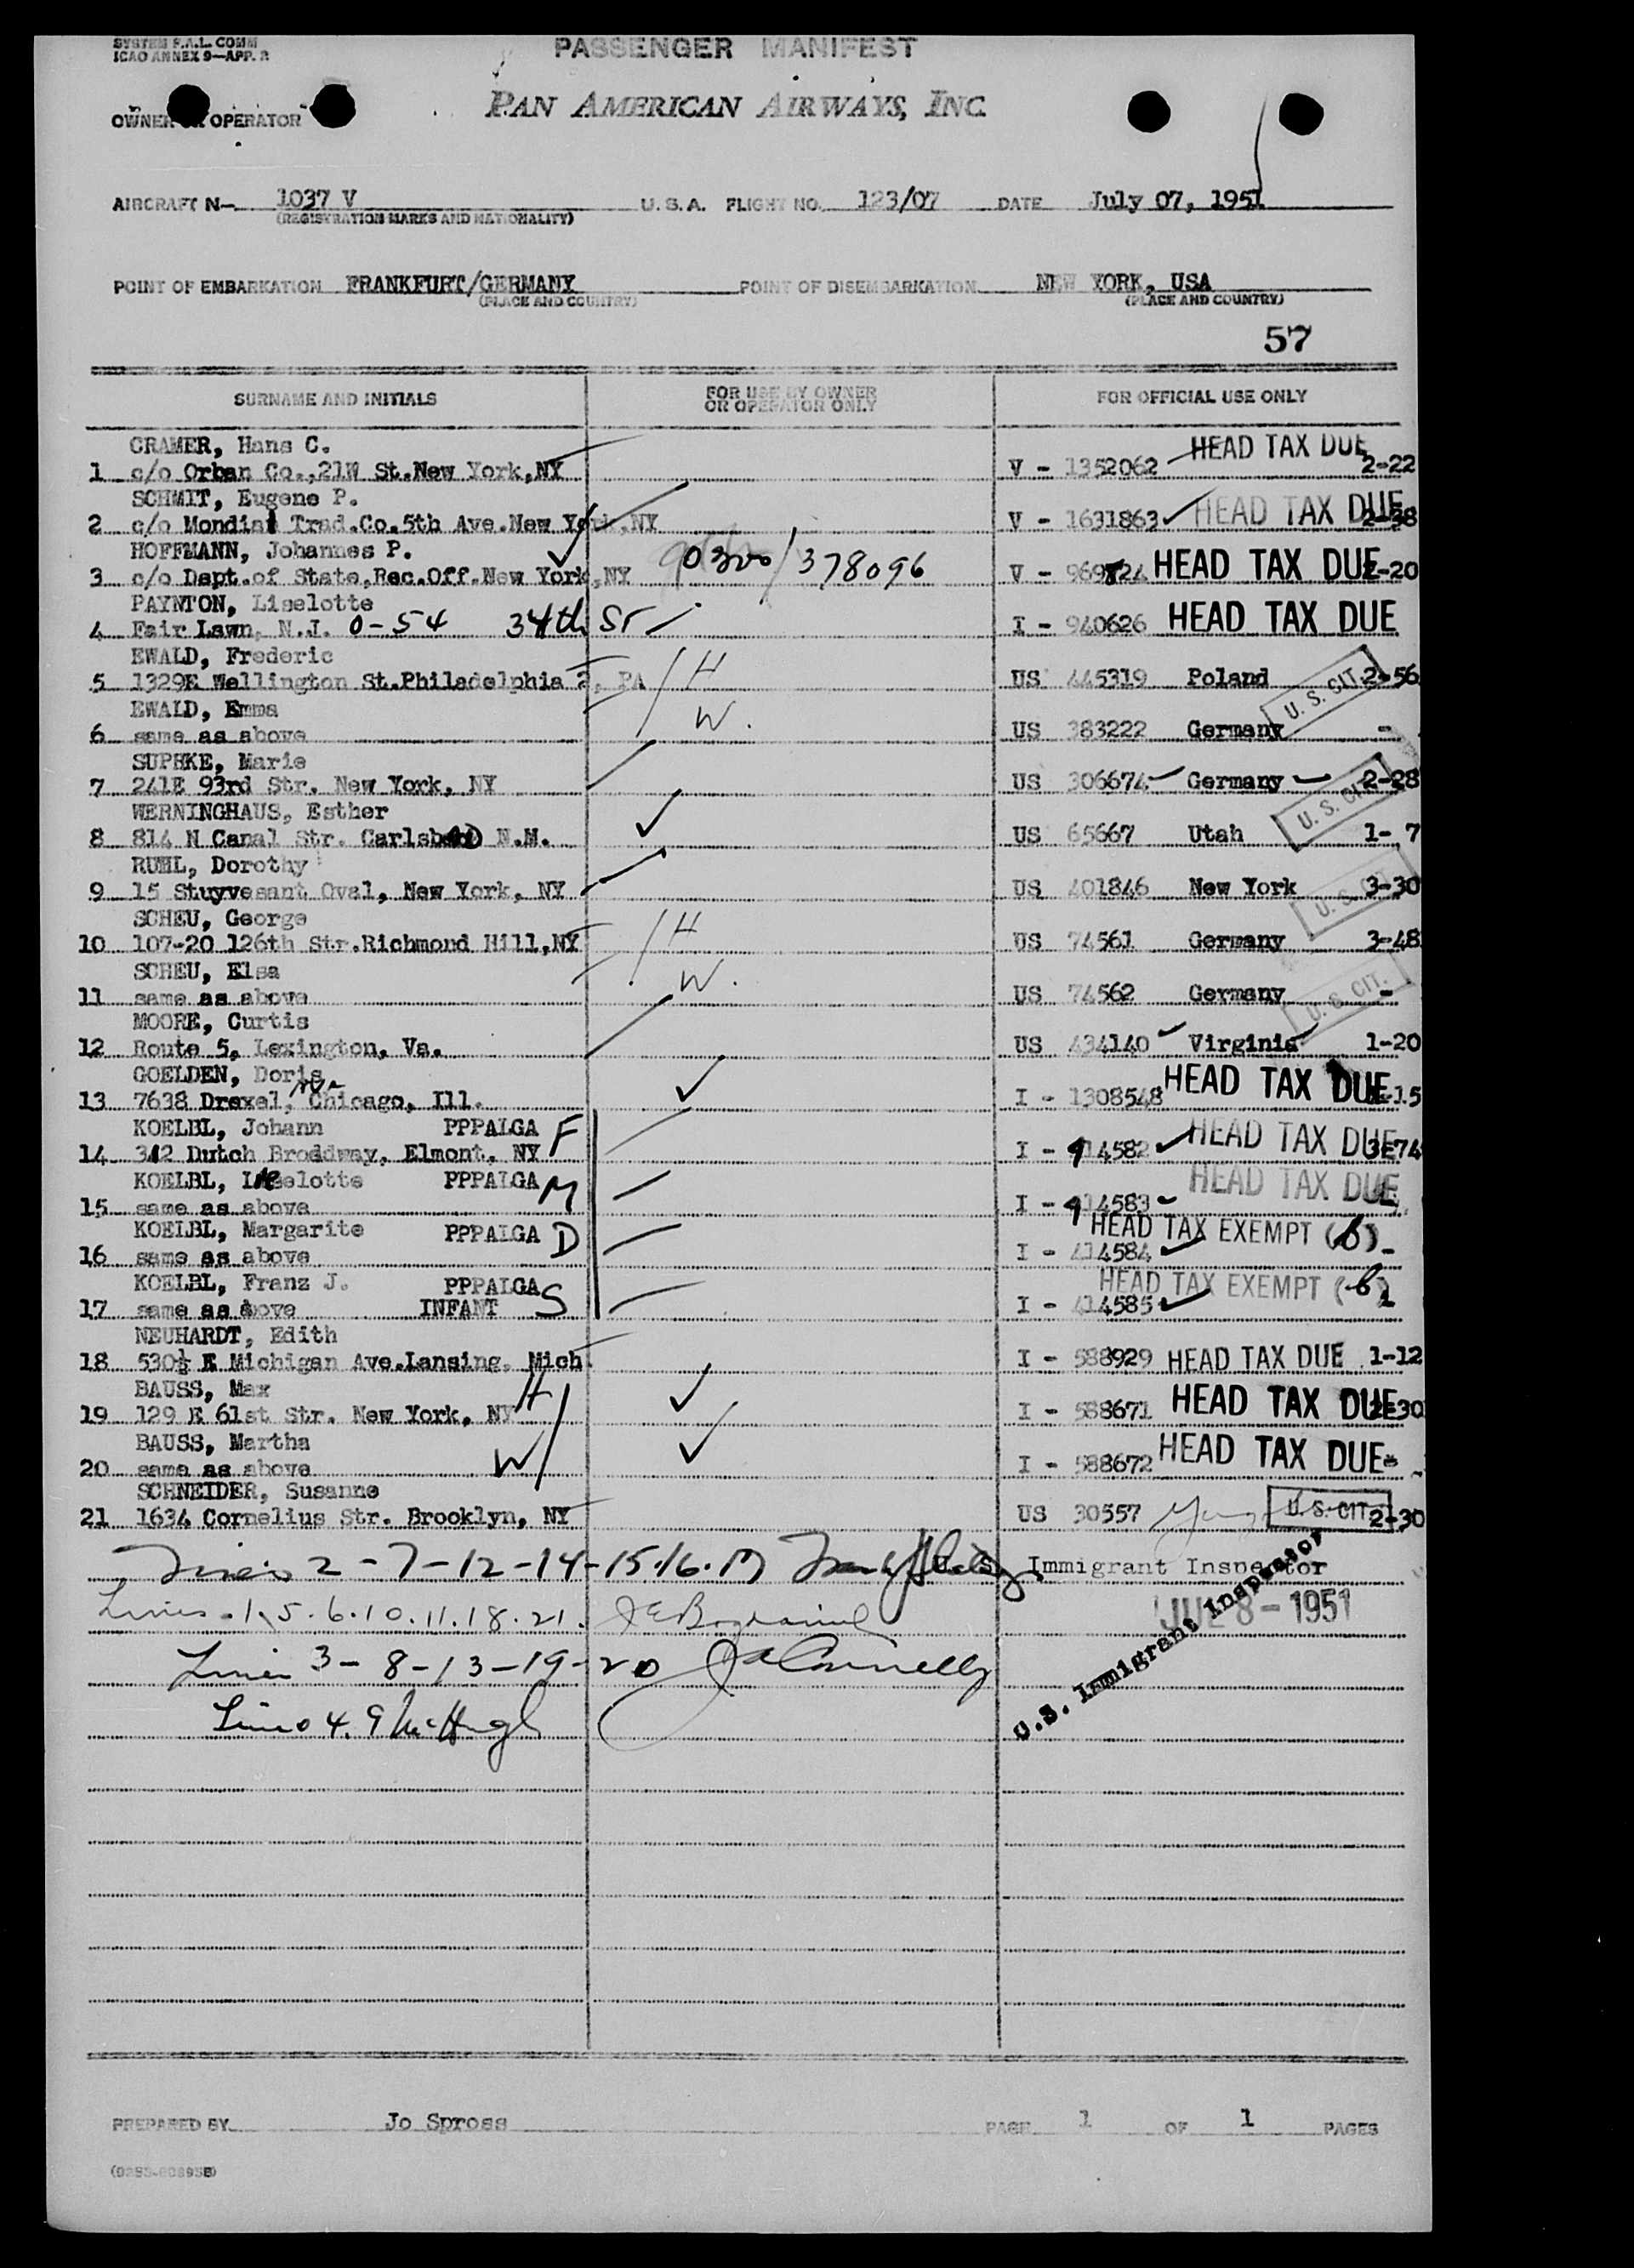 SYSTEM P.A.L. COMM
ICAO ANNEX 9—APP. 2
PASSENGER MANIFEST
PAN AMERICAN AIRWAYS, INC.
OWNER OR OPERATOR
AIRCRAFT N— 1037 V U. S. A. FLIGHT NO. 123/07 DATE July 07, 1951
(REGISTRATION MARKS AND NATIONALITY)
POINT OF EMBARKATION FRANKFURT/GERMANY POINT OF DISEMBARKATION NEW YORK, USA
(PLACE AND COUNTRY) (PLACE AND COUNTRY)
57
SURNAME AND INITIALS FOR USE BY OWNER OR OPERATOR ONLY FOR OFFICIAL USE ONLY
CRAMER, Hans C.
1 c/o Orban Co.,21W St.New York,NY V - 1352062 HEAD TAX DUE 2-22
SCHMIT, Eugene P.
2 c/o Mondial Trad.Co.5th Ave.New York,NY V - 1631863 HEAD TAX DUE 2-38
HOFFMANN, Johannes P.
3 c/o Dept.of State,Rec.Off.New York,NY 90300/378096 V - 969824 HEAD TAX DUE 2-20
PAYNTON, Liselotte
4 Fair Lawn, N.J. 0-54 34th St I - 940626 HEAD TAX DUE
EWALD, Frederic
5 1329E Wellington St.Philadelphia 2, PA H US 445319 Poland U. S. CIT. 2-56
EWALD, Emma
6 same as above W. US 383222 Germany -
SUPPKE, Marie
7 241E 93rd Str. New York, NY US 306674 Germany U. S. CIT. 2-28
WERNINGHAUS, Esther
8 814 N Canal Str. Carlsbad N.M. US 65667 Utah 1- 7
RUHL, Dorothy
9 15 Stuyvesant Oval, New York, NY US 401846 New York U. S. CIT. 3-30
SCHEU, George
10 107-20 126th Str.Richmond Hill,NY H US 74561 Germany 3-48
SCHEU, Elsa
11 same as above W. US 74562 Germany U. S. CIT. -
MOORE, Curtis
12 Route 5, Lexington, Va. US 434140 Virginia 1-20
GOELDEN, Doris
13 7638 Drexel, Chicago, Ill. I - 1308548 HEAD TAX DUE -15
KOELBL, Johann PPPALGA F
14 312 Dutch Broddway, Elmont, NY I - 414582 HEAD TAX DUE 3-74
KOELBL, Liselotte PPPALGA M
15 same as above I - 414583 HEAD TAX DUE
KOELBL, Margarite PPPALGA D HEAD TAX EXEMPT (b)
16 same as above I - 414584 -
KOELBL, Franz J. PPPALGA S HEAD TAX EXEMPT (b)
17 same as above INFANT I - 414585
NEUHARDT, Edith
18 530½ E Michigan Ave.Lansing, Mich. I - 588929 HEAD TAX DUE 1-12
BAUSS, Max
19 129 E 61st Str. New York, NY H I - 588671 HEAD TAX DUE 2-30
BAUSS, Martha
20 same as above W I - 588672 HEAD TAX DUE -
SCHNEIDER, Susanne
21 1634 Cornelius Str. Brooklyn, NY US 30557 U. S. CIT. 2-30
Lines 2-7-12-14-15.16.17 U.S. Immigrant Inspector
Lines 1.5.6.10.11.18.21. JUL 8 - 1951
Lines 3-8-13-19-20 JA Connelly
U.S. Immigrant Inspector
Lines 4.9 McHugh
PREPARED BY Jo Spross PAGE 1 OF 1 PAGES